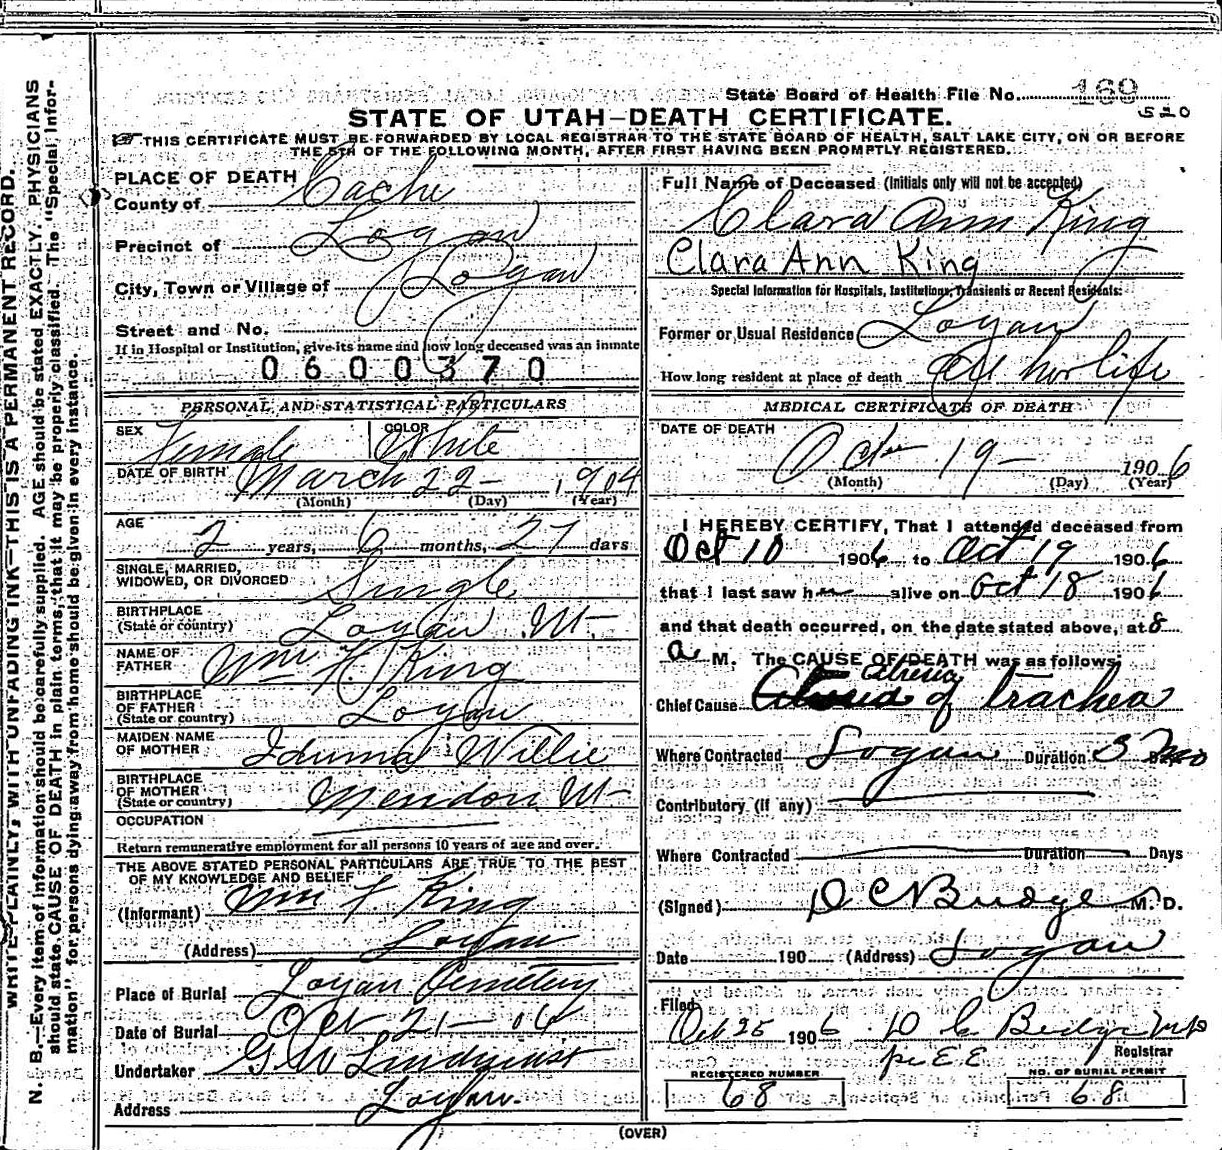 WRITE PLAINLY, WITH UNFADING INK—THIS IS A PERMANENT RECORD.
N. B.—Every item of information should be carefully supplied. AGE should be stated EXACTLY. PHYSICIANS
should state CAUSE OF DEATH in plain terms, that it may be properly classified. The "Special Infor-
mation" for persons dying away from home should be given in every instance.
State Board of Health File No. 169
520
STATE OF UTAH—DEATH CERTIFICATE.
THIS CERTIFICATE MUST BE FORWARDED BY LOCAL REGISTRAR TO THE STATE BOARD OF HEALTH, SALT LAKE CITY, ON OR BEFORE
THE 5TH OF THE FOLLOWING MONTH, AFTER FIRST HAVING BEEN PROMPTLY REGISTERED.
PLACE OF DEATH
County of Cache
Precinct of Logan
City, Town or Village of Logan
Street and No.
If in Hospital or Institution, give its name and how long deceased was an inmate
0600370
PERSONAL AND STATISTICAL PARTICULARS
SEX Female COLOR White
DATE OF BIRTH March 22 - 1904
(Month) (Day) (Year)
AGE 2 years, 6 months, 27 days
SINGLE, MARRIED,
WIDOWED, OR DIVORCED Single
BIRTHPLACE
(State or country) Logan Ut-
NAME OF
FATHER Wm F. King
BIRTHPLACE
OF FATHER
(State or country) Logan
MAIDEN NAME
OF MOTHER Iduma Willie
BIRTHPLACE
OF MOTHER
(State or country) Mendon Ut-
OCCUPATION
Return remunerative employment for all persons 10 years of age and over.
THE ABOVE STATED PERSONAL PARTICULARS ARE TRUE TO THE BEST
OF MY KNOWLEDGE AND BELIEF
(Informant) Wm F King
(Address) Logan
Place of Burial Logan Cemetery
Date of Burial Oct 21 - 06
Undertaker G W Lindquist
Address Logan.
Full Name of Deceased (Initials only will not be accepted)
Clara Ann King
Clara Ann King
Special Information for Hospitals, Institutions, Transients or Recent Residents:
Former or Usual Residence Logan
How long resident at place of death All her life
MEDICAL CERTIFICATE OF DEATH
DATE OF DEATH
Oct 19 - 1906
(Month) (Day) (Year)
I HEREBY CERTIFY, That I attended deceased from
Oct 10 1906 to Oct 19 1906
that I last saw her alive on Oct 18 1906
and that death occurred, on the date stated above, at 8
a M. The CAUSE OF DEATH was as follows:
Atresia
Chief Cause of trachea
Where Contracted Logan Duration 3 Mo
Contributory (if any)
Where Contracted Duration Days
(Signed) D C Budge M. D.
Date 190 (Address) Logan
Filed
Oct 25 1906 D C Budge MD
per E E Registrar
REGISTERED NUMBER
68
NO. OF BURIAL PERMIT
68
(OVER)